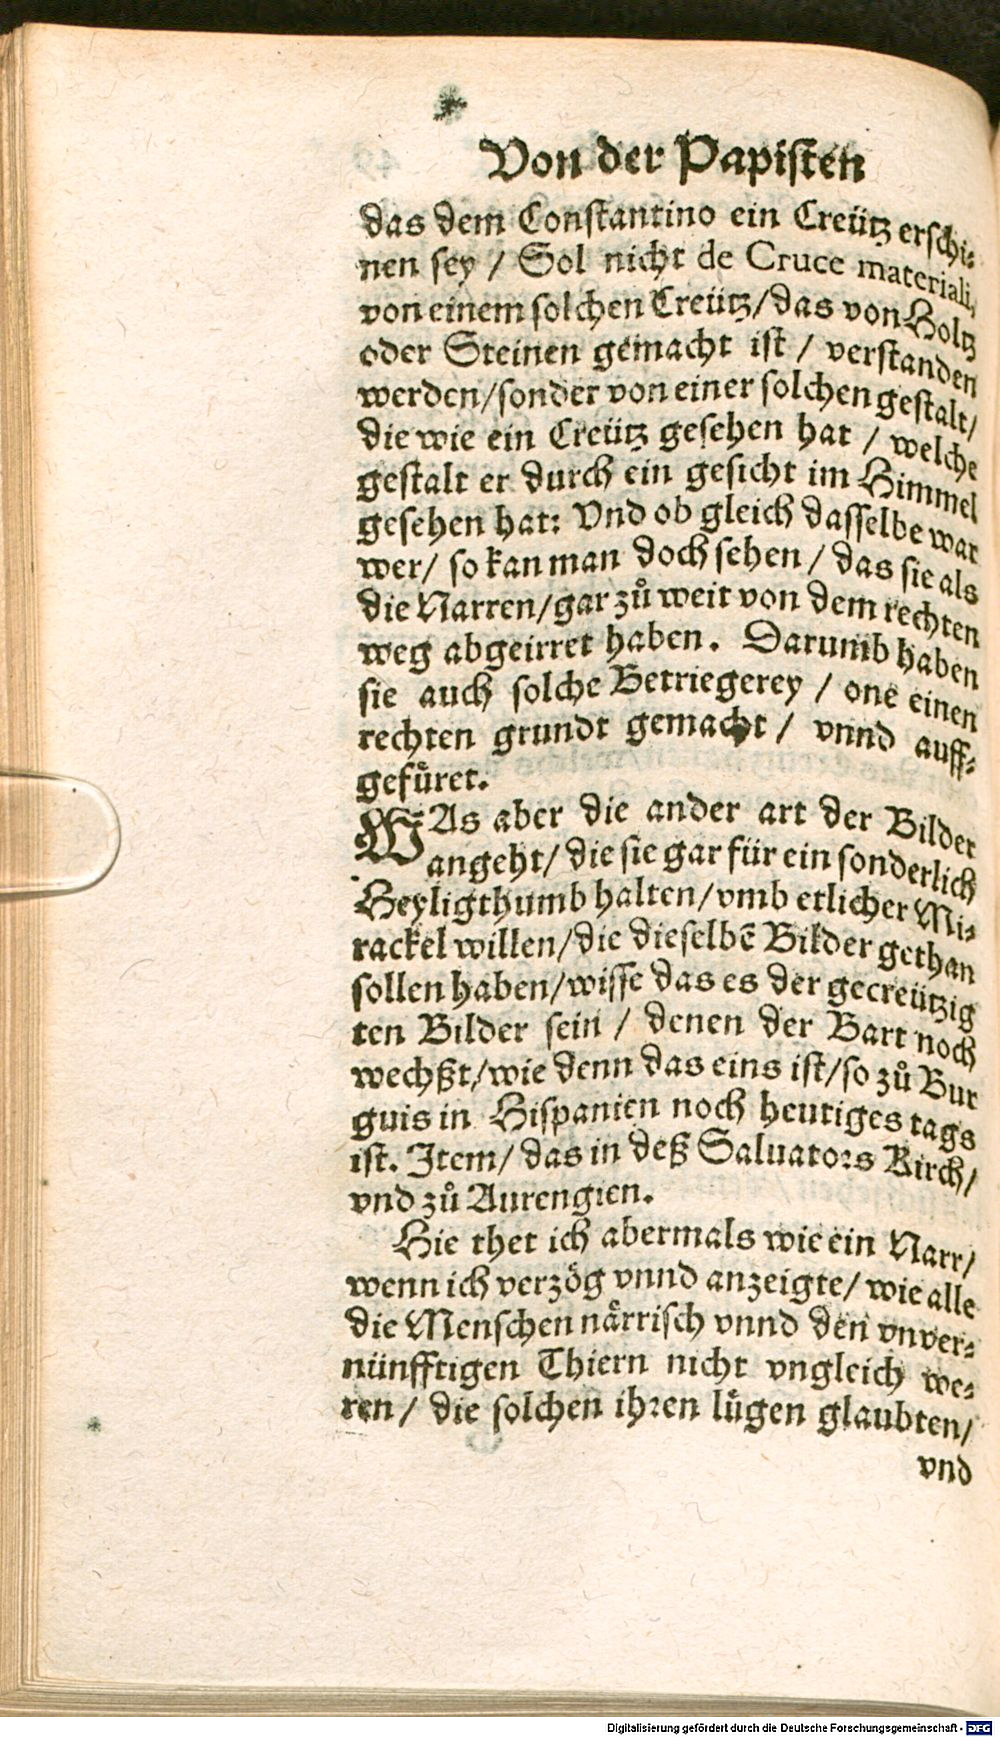 Von der Papisten
das dem Constantino ein Creütz erschi-
nen sey / Sol nicht de Cruce materiali,
von einem solchen Creütz/das von Holtz
oder Steinen gemacht ist / verstanden
werden/sonder von einer solchen gestalt/
die wie ein Creütz gesehen hat / welche
gestalt er durch ein gesicht im Himmel
gesehen hat: Vnd ob gleich dasselbe war
wer/ so kan man doch sehen / das sie als
die Narren/gar zuͦ weit von dem rechten
weg abgeirret haben. Darumb haben
sie auch solche Betriegerey / one einen
rechten grundt gemacht / vnnd auff-
gefuͤret.
WAs aber die ander art der Bilder
angeht/ die sie gar für ein sonderlich
Heyligthumb halten/vmb etlicher Mi-
rackel willen/die dieselbē Bilder gethan
sollen haben/wisse das es der gecreützig
ten Bilder sein / denen der Bart noch
wechßt/wie denn das eins ist/so zuͦ Bur
guis in Hispanien noch heutiges tags
ist. Item/ das in deß Saluators Kirch/
vnd zuͦ Aurengien.
Hie thet ich abermals wie ein Narr/
wenn ich verzoͤg vnnd anzeigte/ wie alle
die Menschen naͤrrisch vnnd den vnver-
nünfftigen Thiern nicht vngleich we-
ren/ die solchen ihren luͤgen glaubten/
vnd
Digitalisierung gefördert durch die Deutsche Forschungsgemeinschaft - DFG